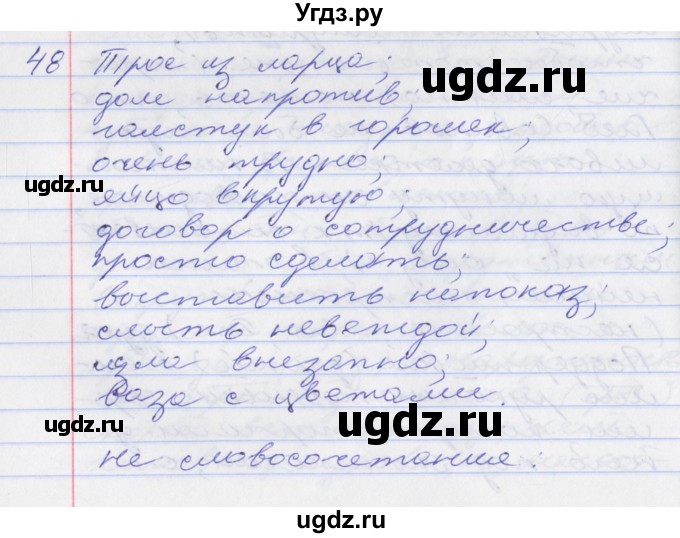 Угдз.ру
48 Трое из ларца;
дом напротив;
галстук в горошек;
очень трудно;
яйцо вкрутую;
договор о сотрудничестве;
просто сделать;
выставить напоказ;
слыть невеждой;
шла внезапно;
ваза с цветами.
не словосочетание:
ugdz.ru
ugdz.ru
ugdz.ru
ugdz.ru
ugdz.ru
ugdz.ru
ugdz.ru
ugdz.ru